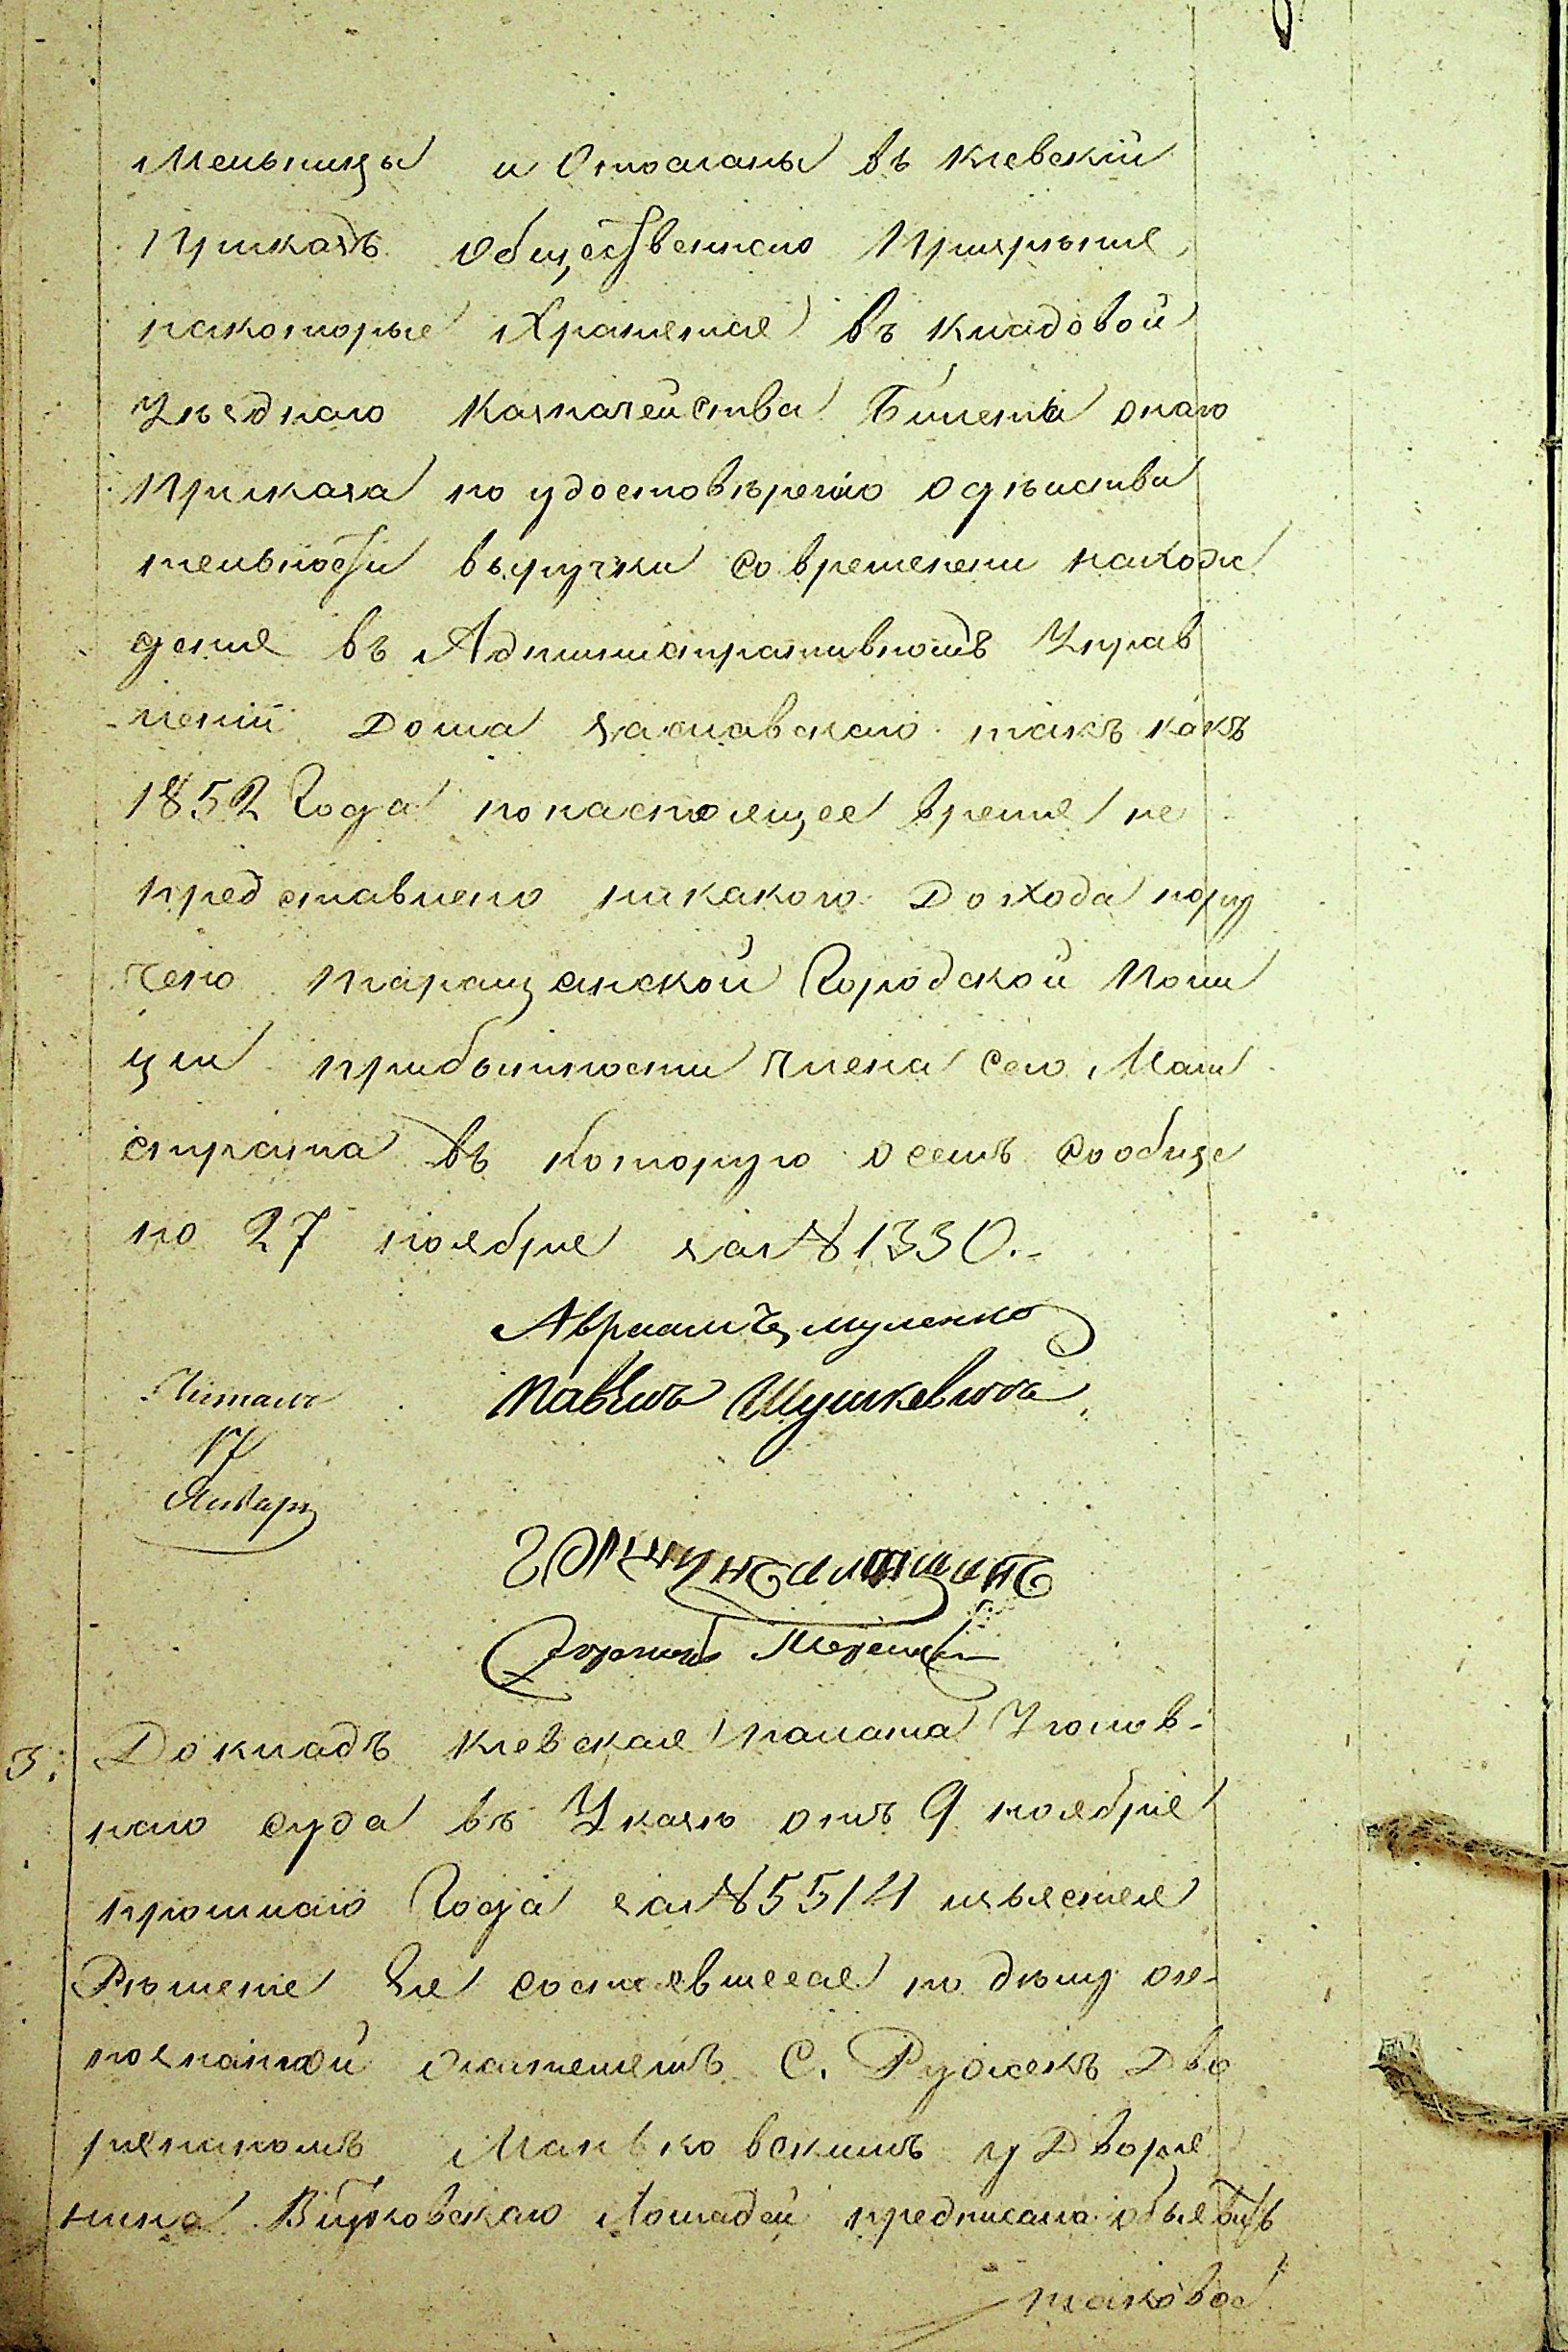 Мельницы и Отосланы въ Кіевскій
Приказъ Общественнаго Призрѣніе
накоторые Хранетсе въ Кладовой
Уѣзднаго Казначейства Билеты онаго
Приказа по удостовѣренію одѣйстви
тельности выручки современени нахож
деніе въ Административномъ Управ
леній Дома Заславскаго такъ какъ
1852 Года понастоящее Време не
представлено никакого Дохода пору
чено Таращанской Городской Поли
ціи прибытности Члена сего Маги
страта въ Которую осемъ Сообще
но 27 ноябре за №1330.-
Авраамъ
Павелъ Шушкевичъ
Читалъ
17
Январ
3. Докладъ Кіевская Палата Уголов-
наго суда въ Указѣ отъ 9 ноябре
прошлаго Года за №5514 изьясняе
Рѣшеніе Ее состоявшеесе по дѣлу
познанной жителемъ С. Ружекъ Дво
рениномъ Маньковскимъ у Дворе
нина Лошадей предписала обьявить
таковое